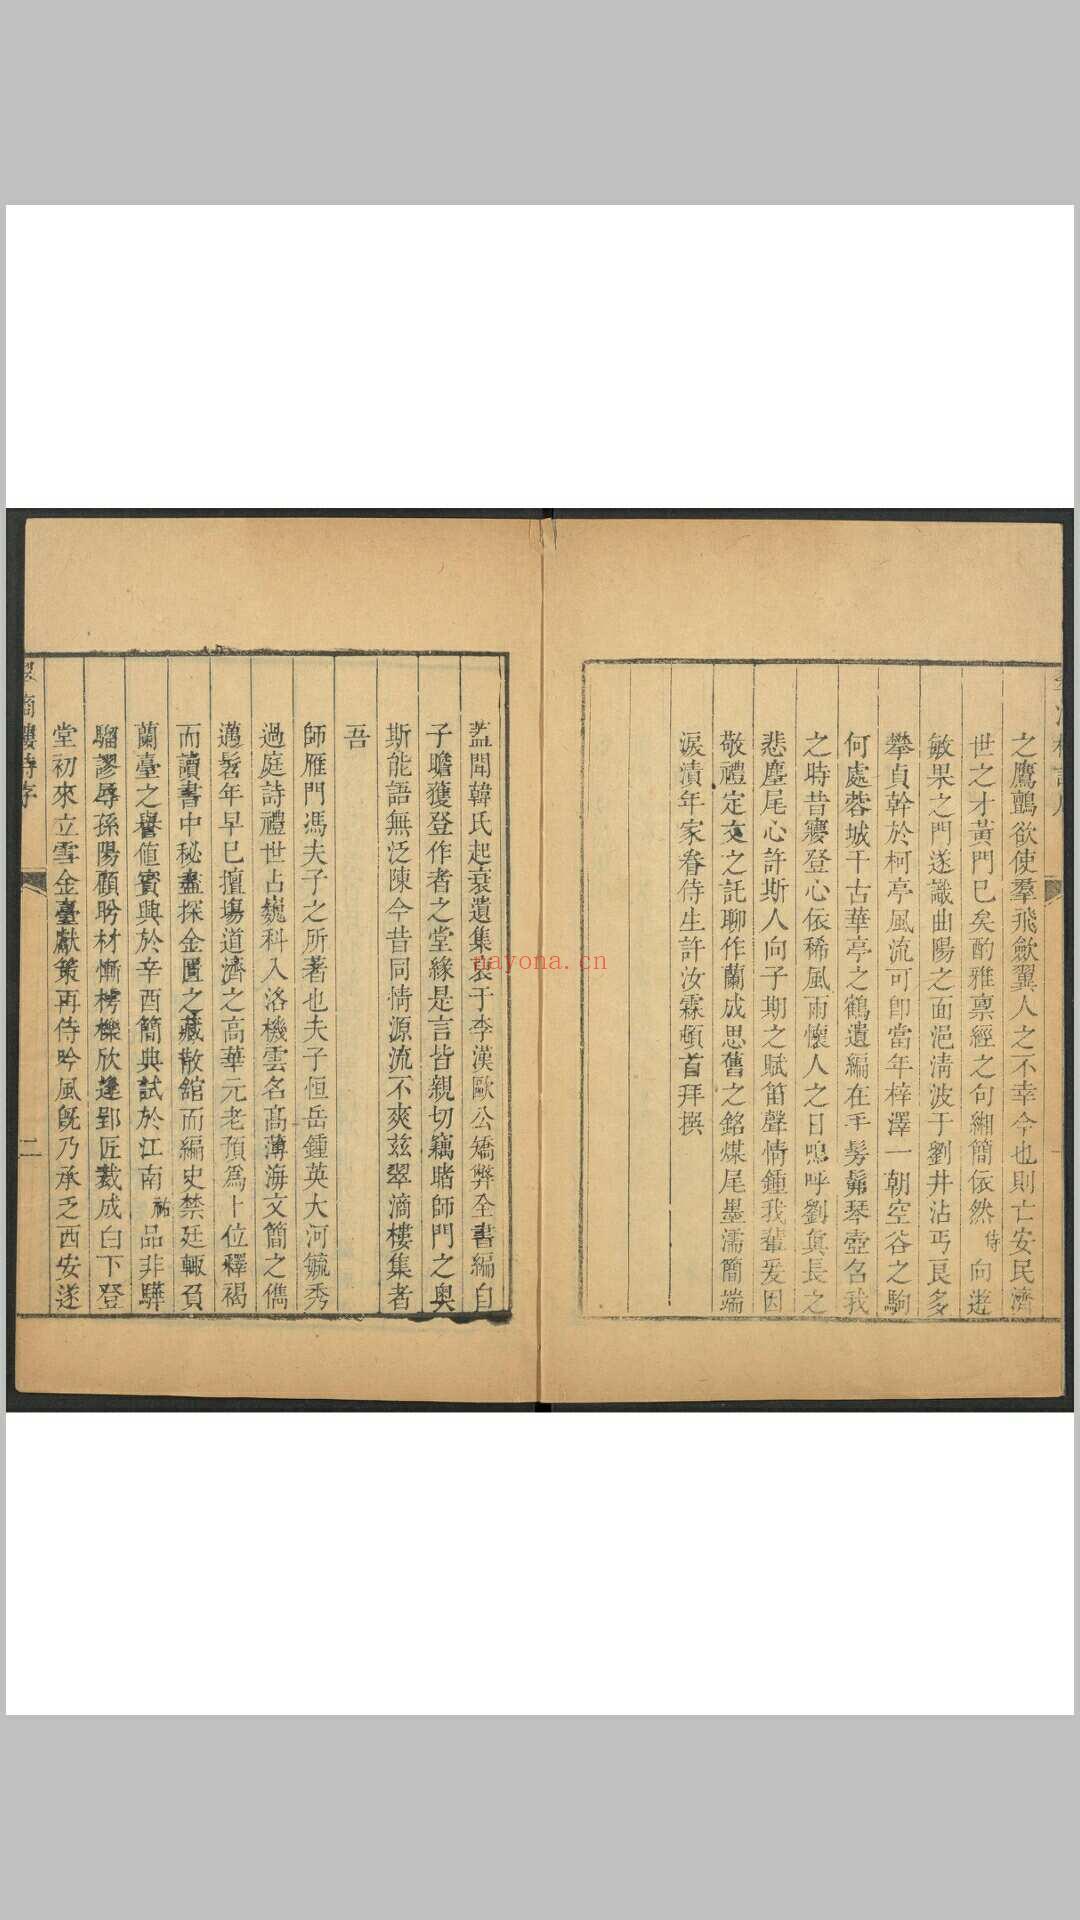 之鷹鸇欲使羣飛歛翼人之不幸今也則亡安民濟
世之才黃門已矣酌雅禀經之句緗簡依然侍向遊
敏果之門遂識曲陽之面浥淸波于劉井沾丐良多
攀貞幹於柯亭風流可卽當年梓澤一朝空谷之駒
何處蓉城千古華亭之鶴遺編在手髣髴琴壺名我
之時昔寢登心依稀風雨懷人之日嗚呼劉眞長之
悲塵尾心許斯人向子期之賦笛聲情鍾我輩爰因
敬禮定文之託聊作蘭成思舊之銘煤尾墨濡簡端
淚漬年家眷侍生許汝霖頓首拜撰
葢聞韓氏起衰遺集裒于李漢歐公矯弊全書編自
子瞻獲登作者之堂緣是言皆親切竊睹師門之奧
斯能語無泛陳今昔同情源流不爽兹翠滴樓集者
吾
師雁門馮夫子之所著也夫子恒岳鍾英大河毓秀
過庭詩禮世占巍科入洛機雲名高薄海文簡之儁
邁髫年早已擅塲道濟之高華元老預爲上位釋褐
而讀書中秘盡探金匱之藏散舘而編史禁廷輙負
蘭臺之譽値賓興於辛酉簡典試於江南祐品非驊
騮謬辱孫陽顧盼材慚樗櫟欣逢郢匠裁成白下登
堂初來立雪金臺獻策再侍吟風旣乃承乏西安遂
翠滴樓詩序
二
nayona.cn